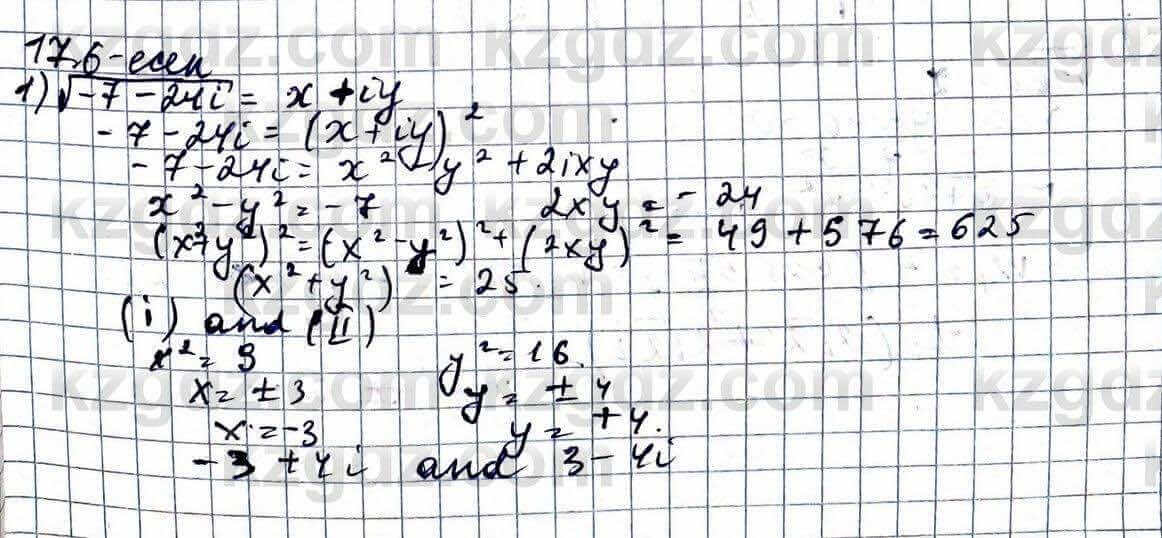 17.6-есеп
1) √-7-24i = x+iy
-7-24i = (x+iy)²
-7-24i = x²-y²+2ixy
x²-y²=-7 2xy=-24
(x²+y²)²=(x²-y²)²+(2xy)²= 49+576=625
(x²+y²) = 25
(i) and (II)
x²=9 y²=16.
x=±3 y=±4
x=-3 y=+4.
-3+4i and 3-4i
kzgdz.com kzgdz.com kzgdz
kzgdz.com
kzgdz.com kzgdz.com kzgdz
kzgdz.com
kzgdz.com kzgdz.com kzgdz